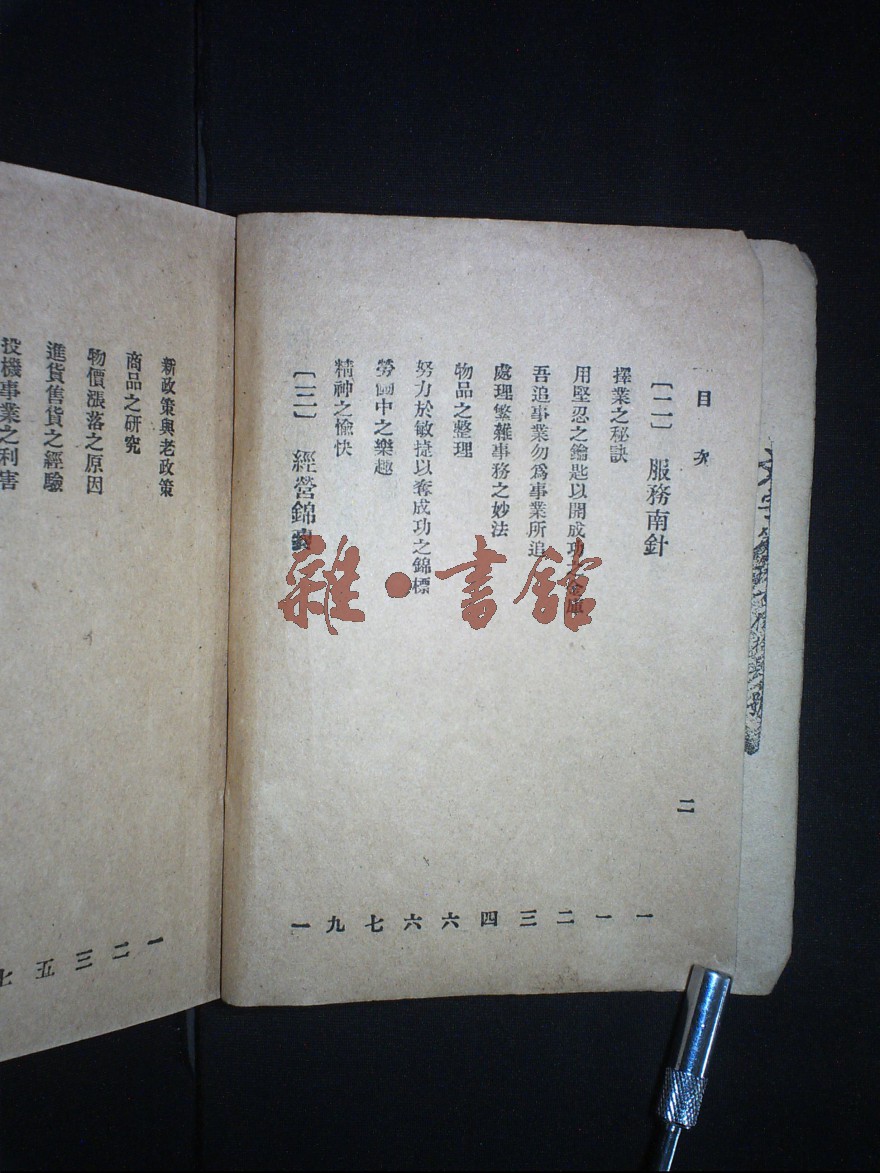 目次
二
〔二〕 服務南針 一
擇業之秘訣 一
用堅忍之鑰匙以開成功之金庫 二
吾追事業勿爲事業所追 三
處理繁雜事務之妙法 四
物品之整理 六
努力於敏捷以奪成功之錦標 六
勞働中之樂趣 七
精神之愉快 九
〔三〕 經營錦囊 一
新政策與老政策 一
商品之研究 二
物價漲落之原因 三
進貨售貨之經驗 五
投機事業之利害 七
雜·書館